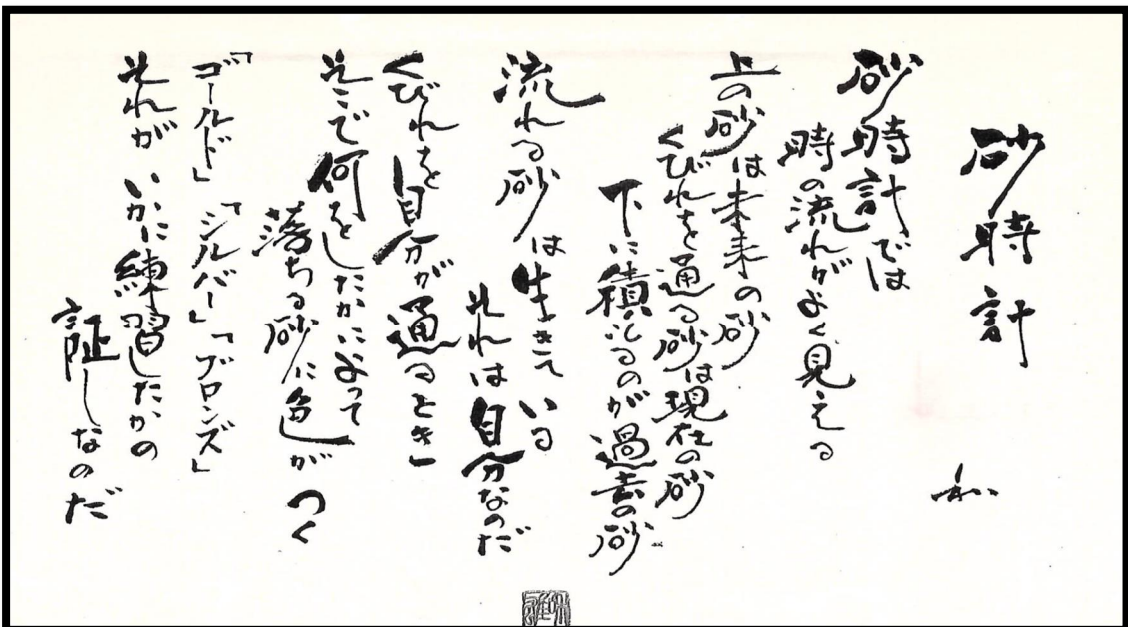 砂時計
砂時計では
時の流れがよく見える
上の砂は未来の砂
くびれを通る砂は現在の砂
下に積もるのが過去の砂
流れる砂は生きている
それは自分なのだ
くびれを自分が通るとき
そこで何をしたかによって
落ちる砂に色がつく
「ゴールド」「シルバー」「ブロンズ」
それがいかに練習したかの
証しなのだ